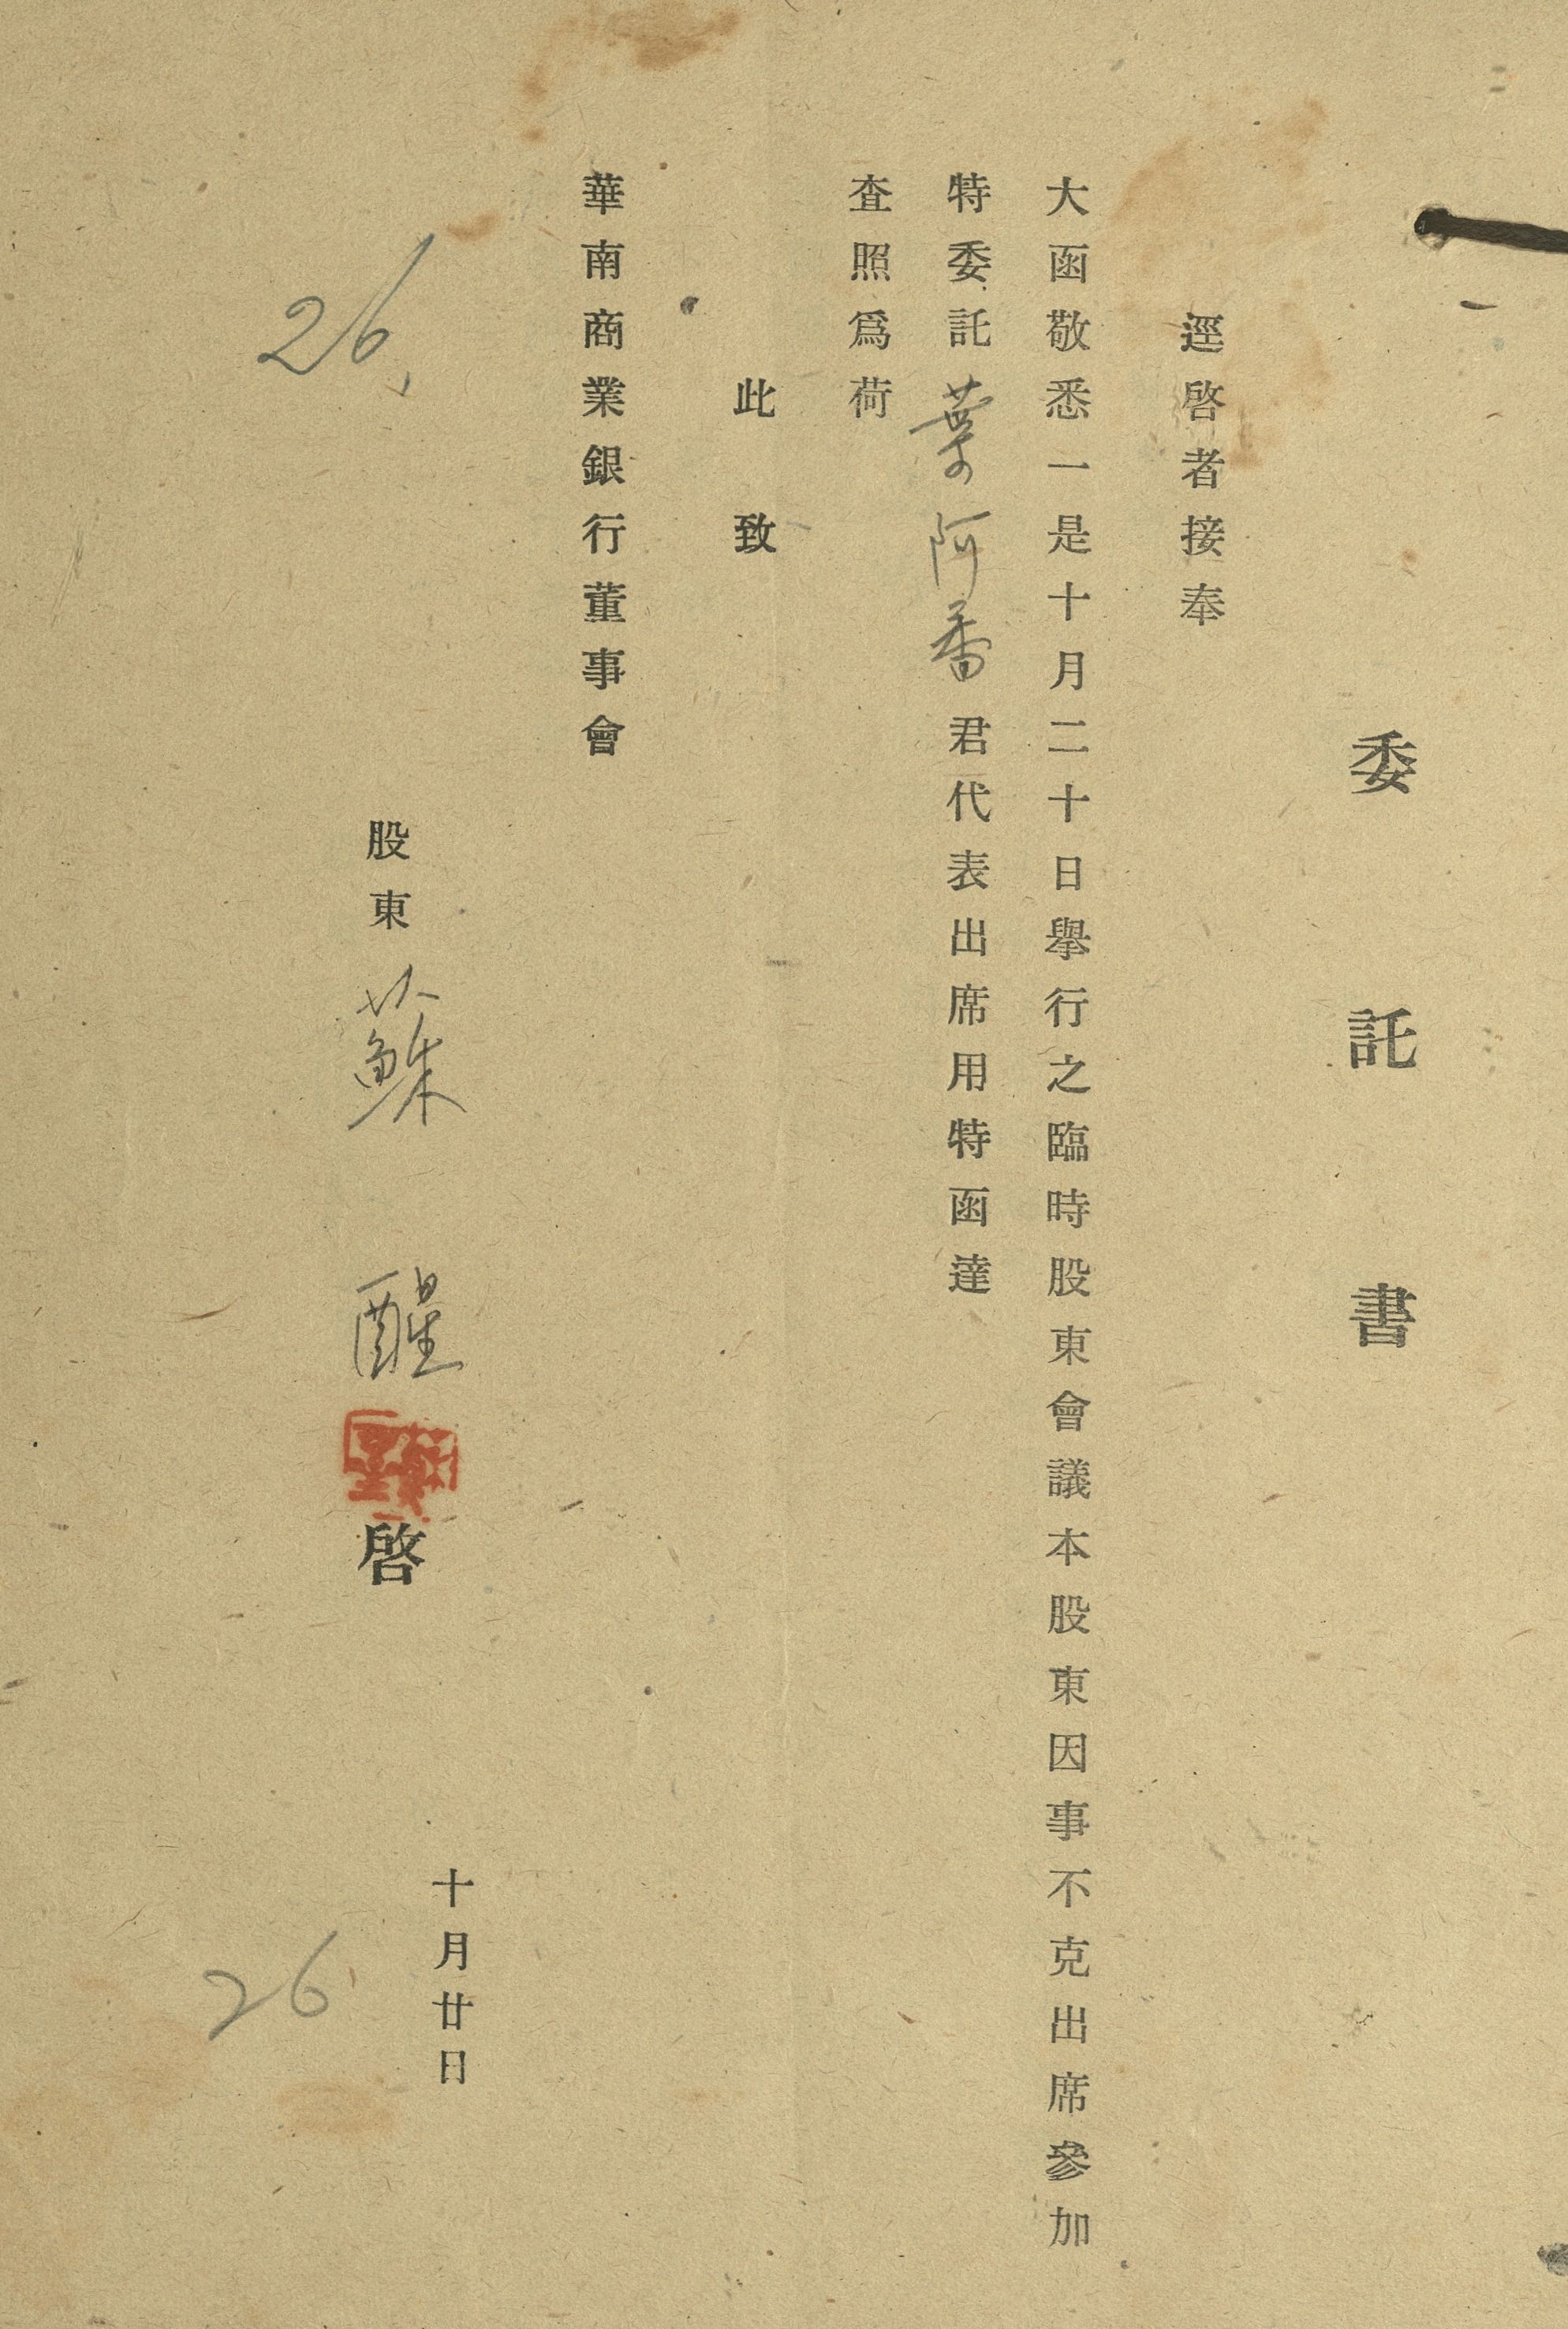 委託書
逕啓者接奉
大函敬悉一是十月二十日舉行之臨時股東會議本股東因事不克出席參加
特委託葉阿番君代表出席用特函達
査照爲荷
此致
華南商業銀行董事會
十月廿日
股東蘇醒啓
26
26